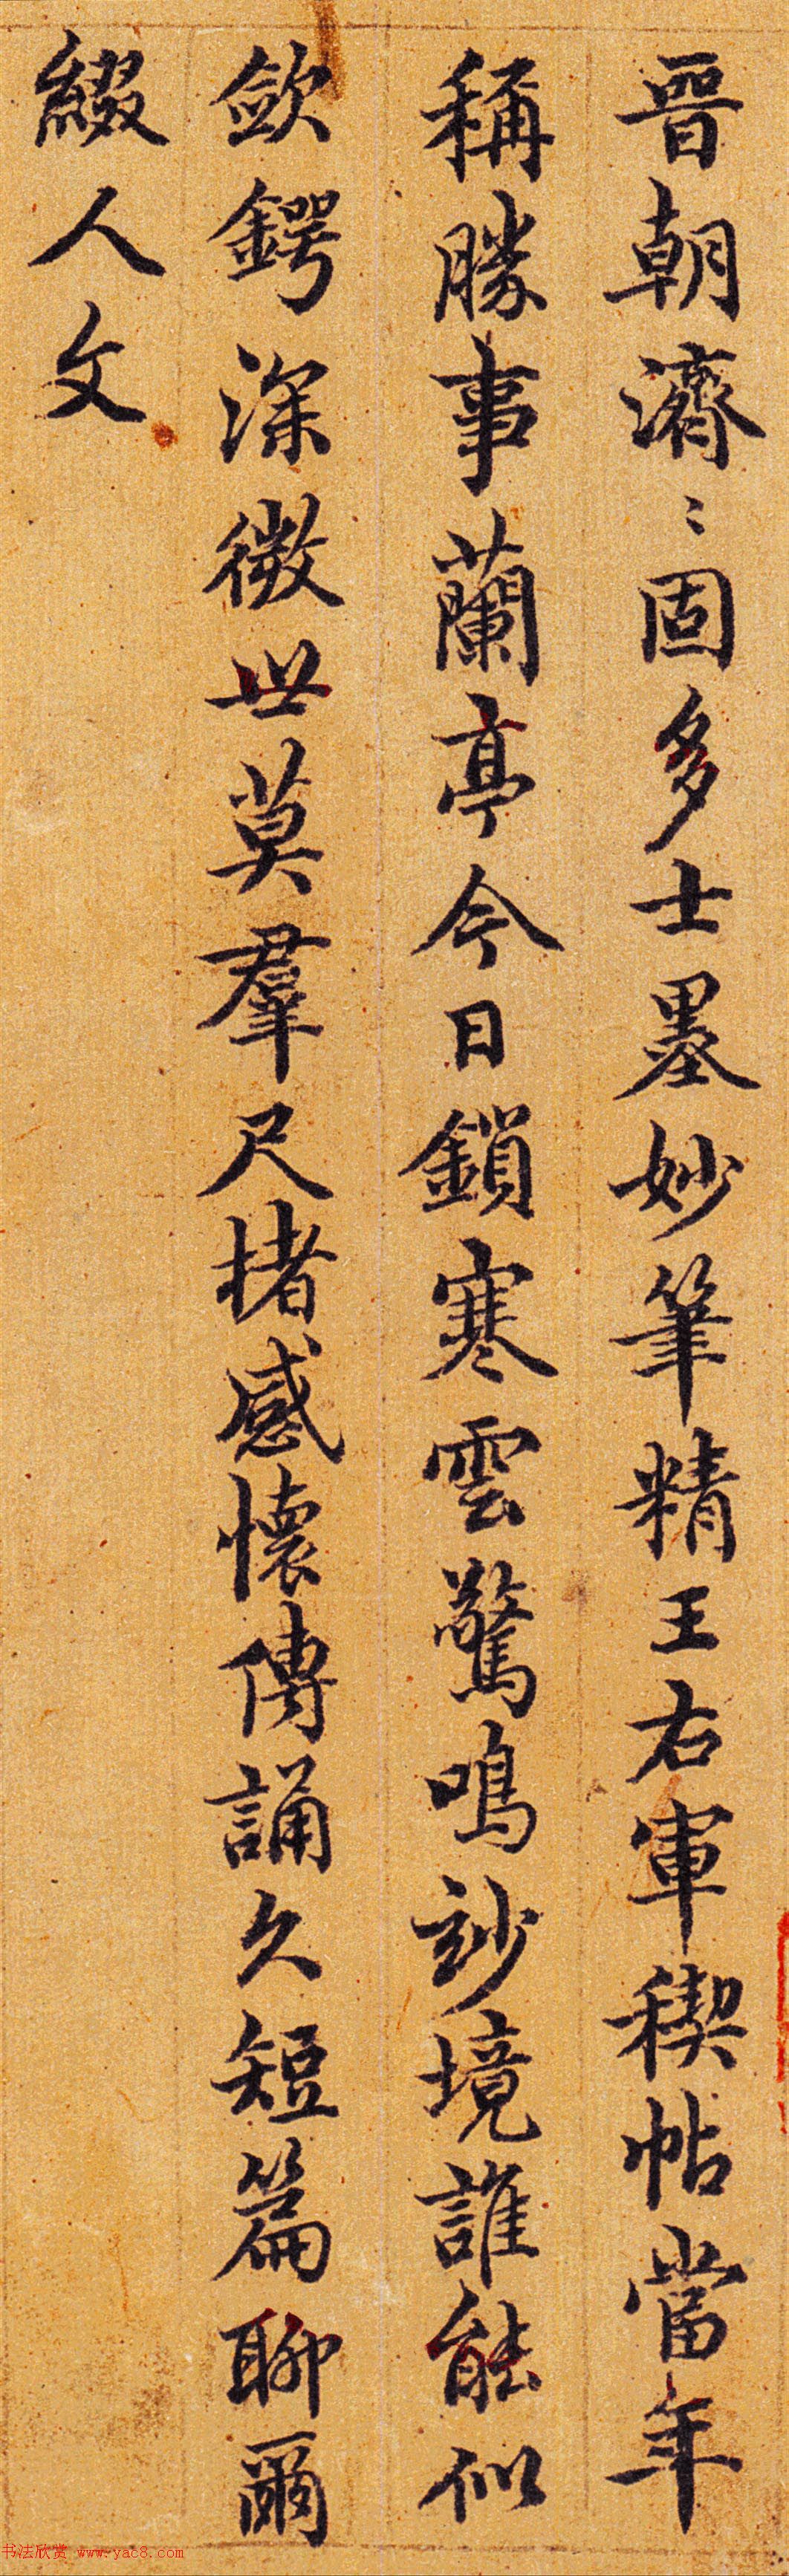 晉朝濟〻固多士墨妙筆精王右軍稧帖當年
稱勝事蘭亭今日鎖寒雲驚鳴玅境誰能似
斂鍔深微世莫羣尺楮感懷傳誦久短篇聊爾
綴人文
书法欣赏 www.yac8.com